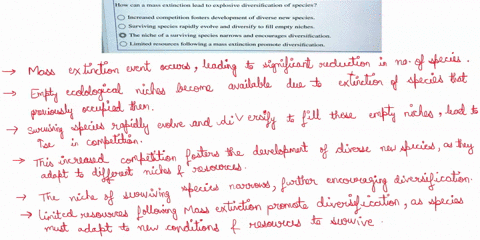 How can a mass extinction lead to explosive diversification of species?
Increased competition fosters development of diverse new species.
Surviving species rapidly evolve and diversify to fill empty niches.
The niche of a surviving species narrows and encourages diversification.
Limited resources following a mass extinction promote diversification.
→ Mass extinction event occurs, leading to significant reduction in no. of species.
→ Empty ecolological niches become available due to extinction of species that
previously occupied them.
→ Surviving species rapidly evolve and diversify to fill these empty niches, lead to
rise in competition.
→ This increased competition fosters the development of diverse new species, as they
adapt to different niches & resources.
→ The niche of surviving species narrows, further encouraging diversification.
→ Limited resources following Mass extinction promote diversification, as species
must adapt to new conditions & resources to survive.